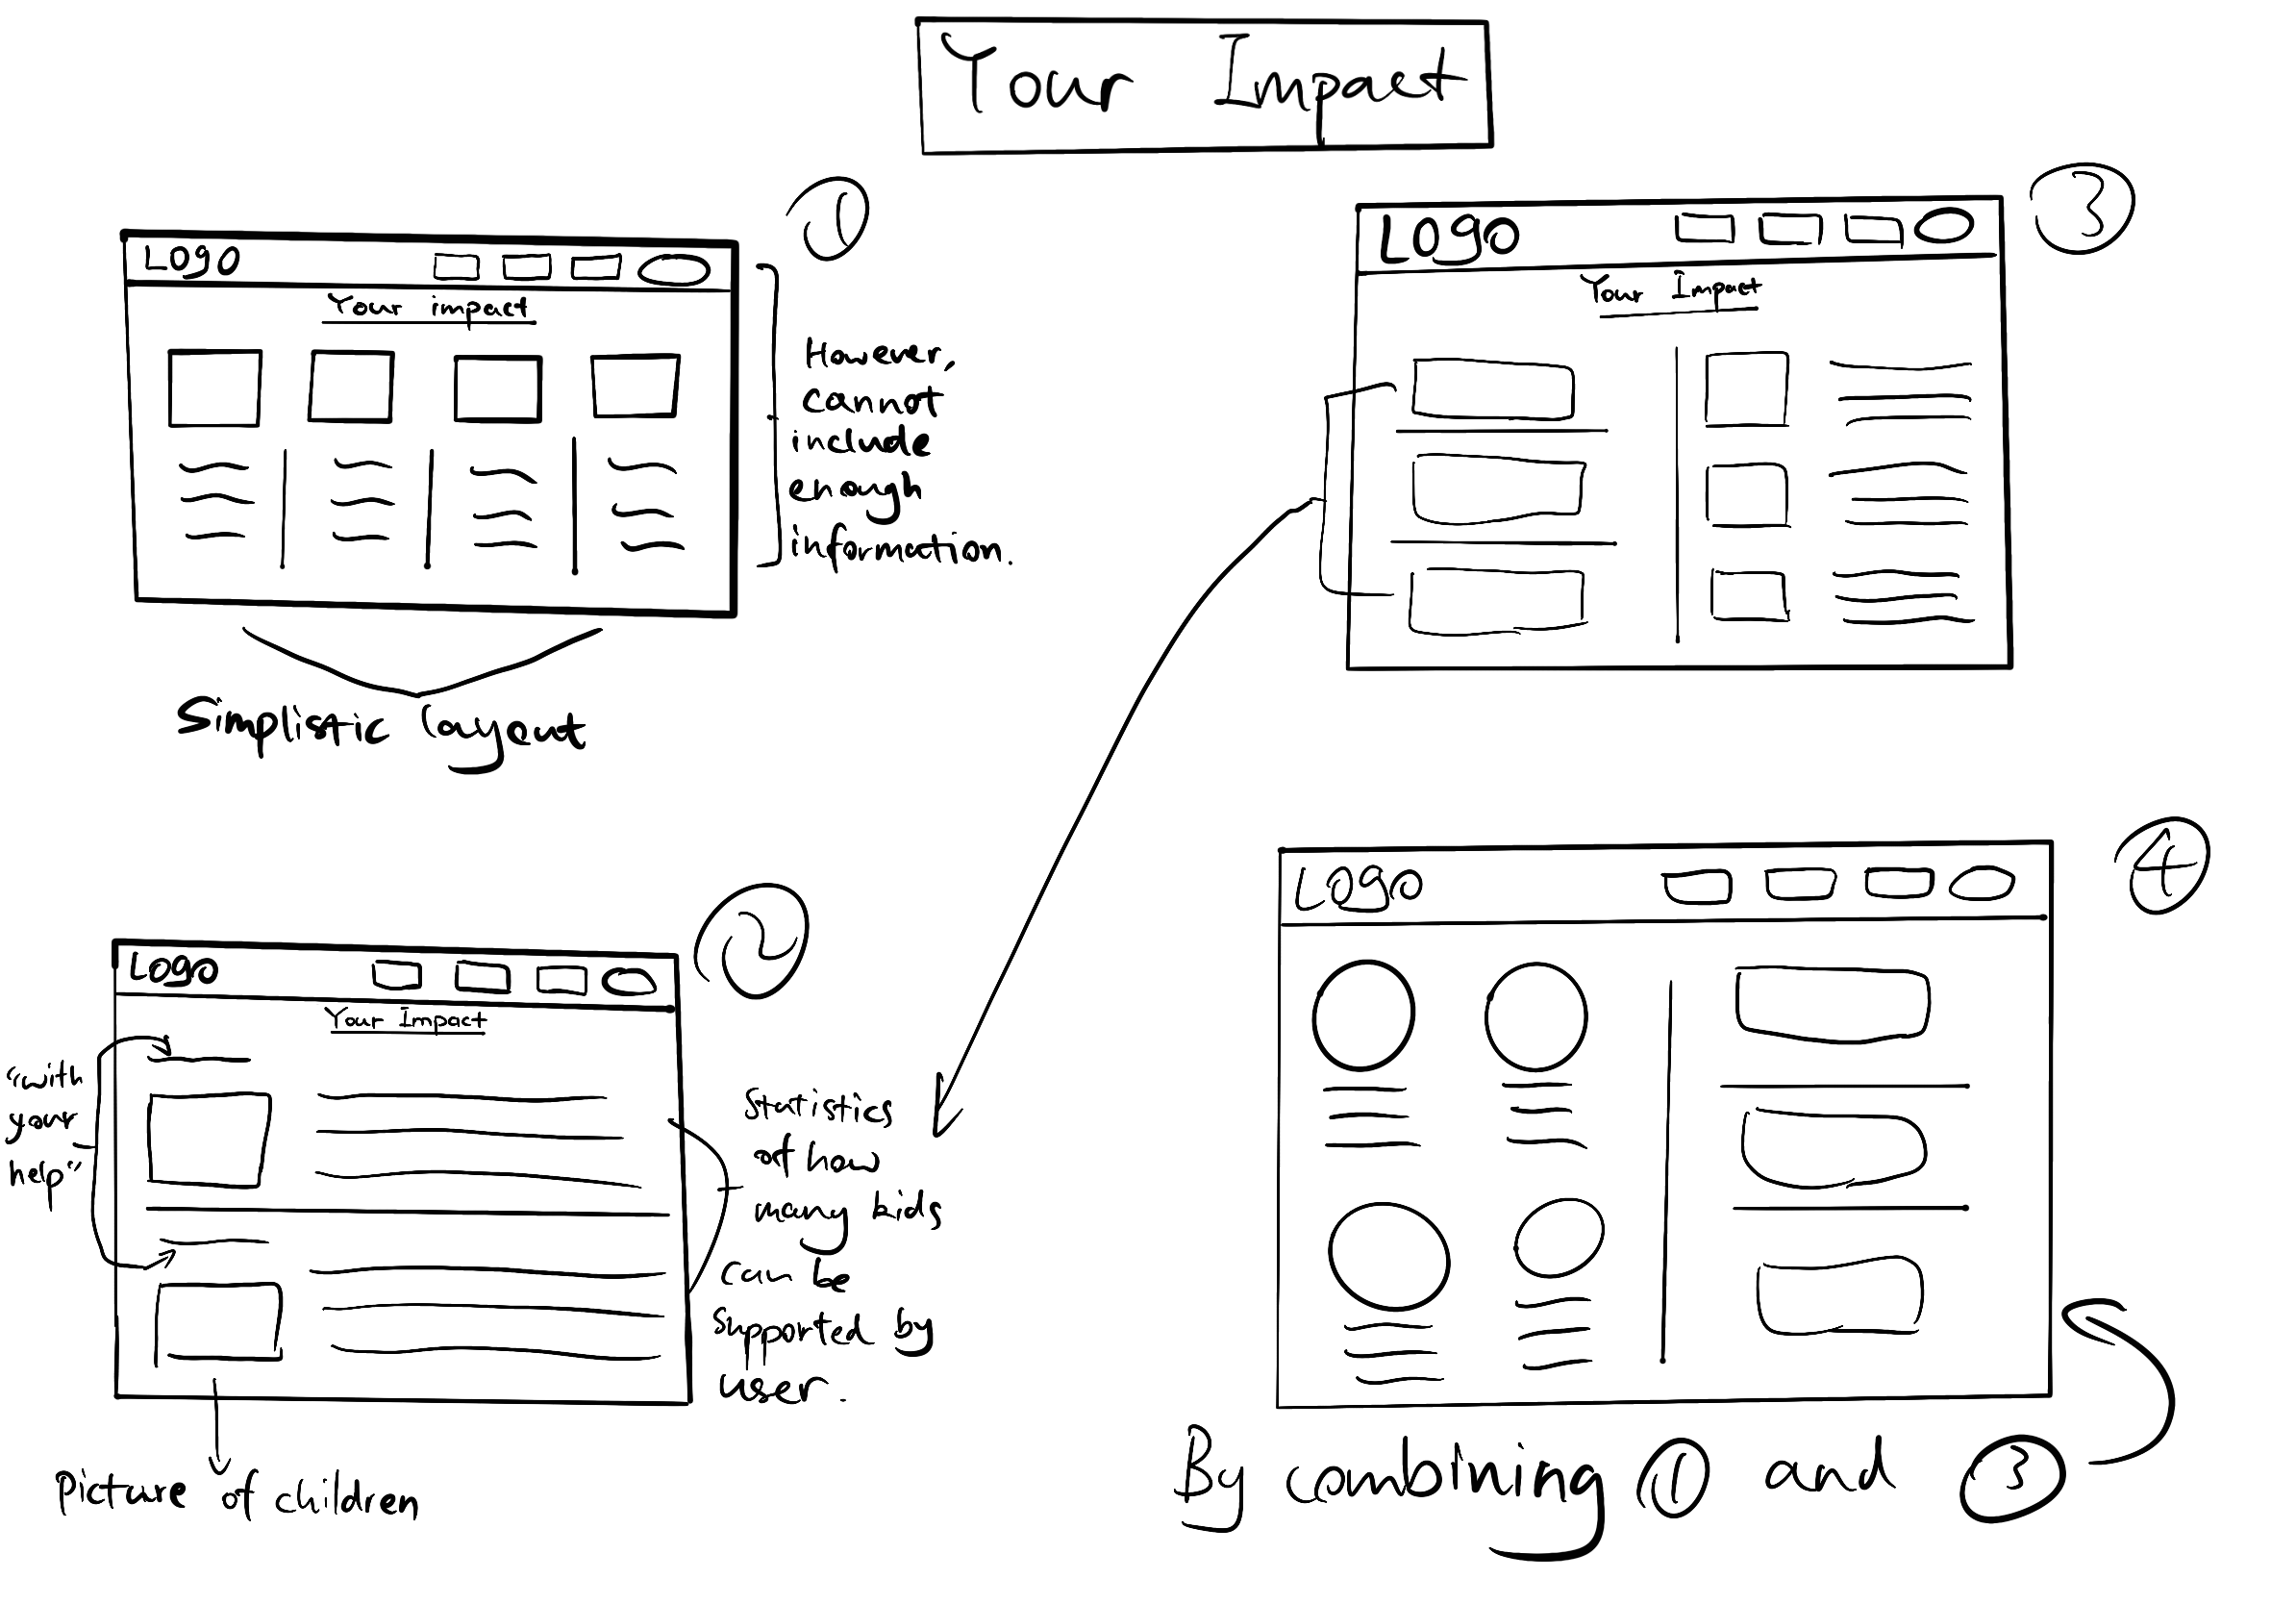 Your Impact
1
Logo
Your impact
However,
cannot
include
enough
information.
Simplistic layout
2
Logo
Your Impact
"with
your
help"
Statistics
of how
many kids
can be
supported by
user.
Picture of children
3
Logo
Your Impact
4
Logo
By combining 1 and 3